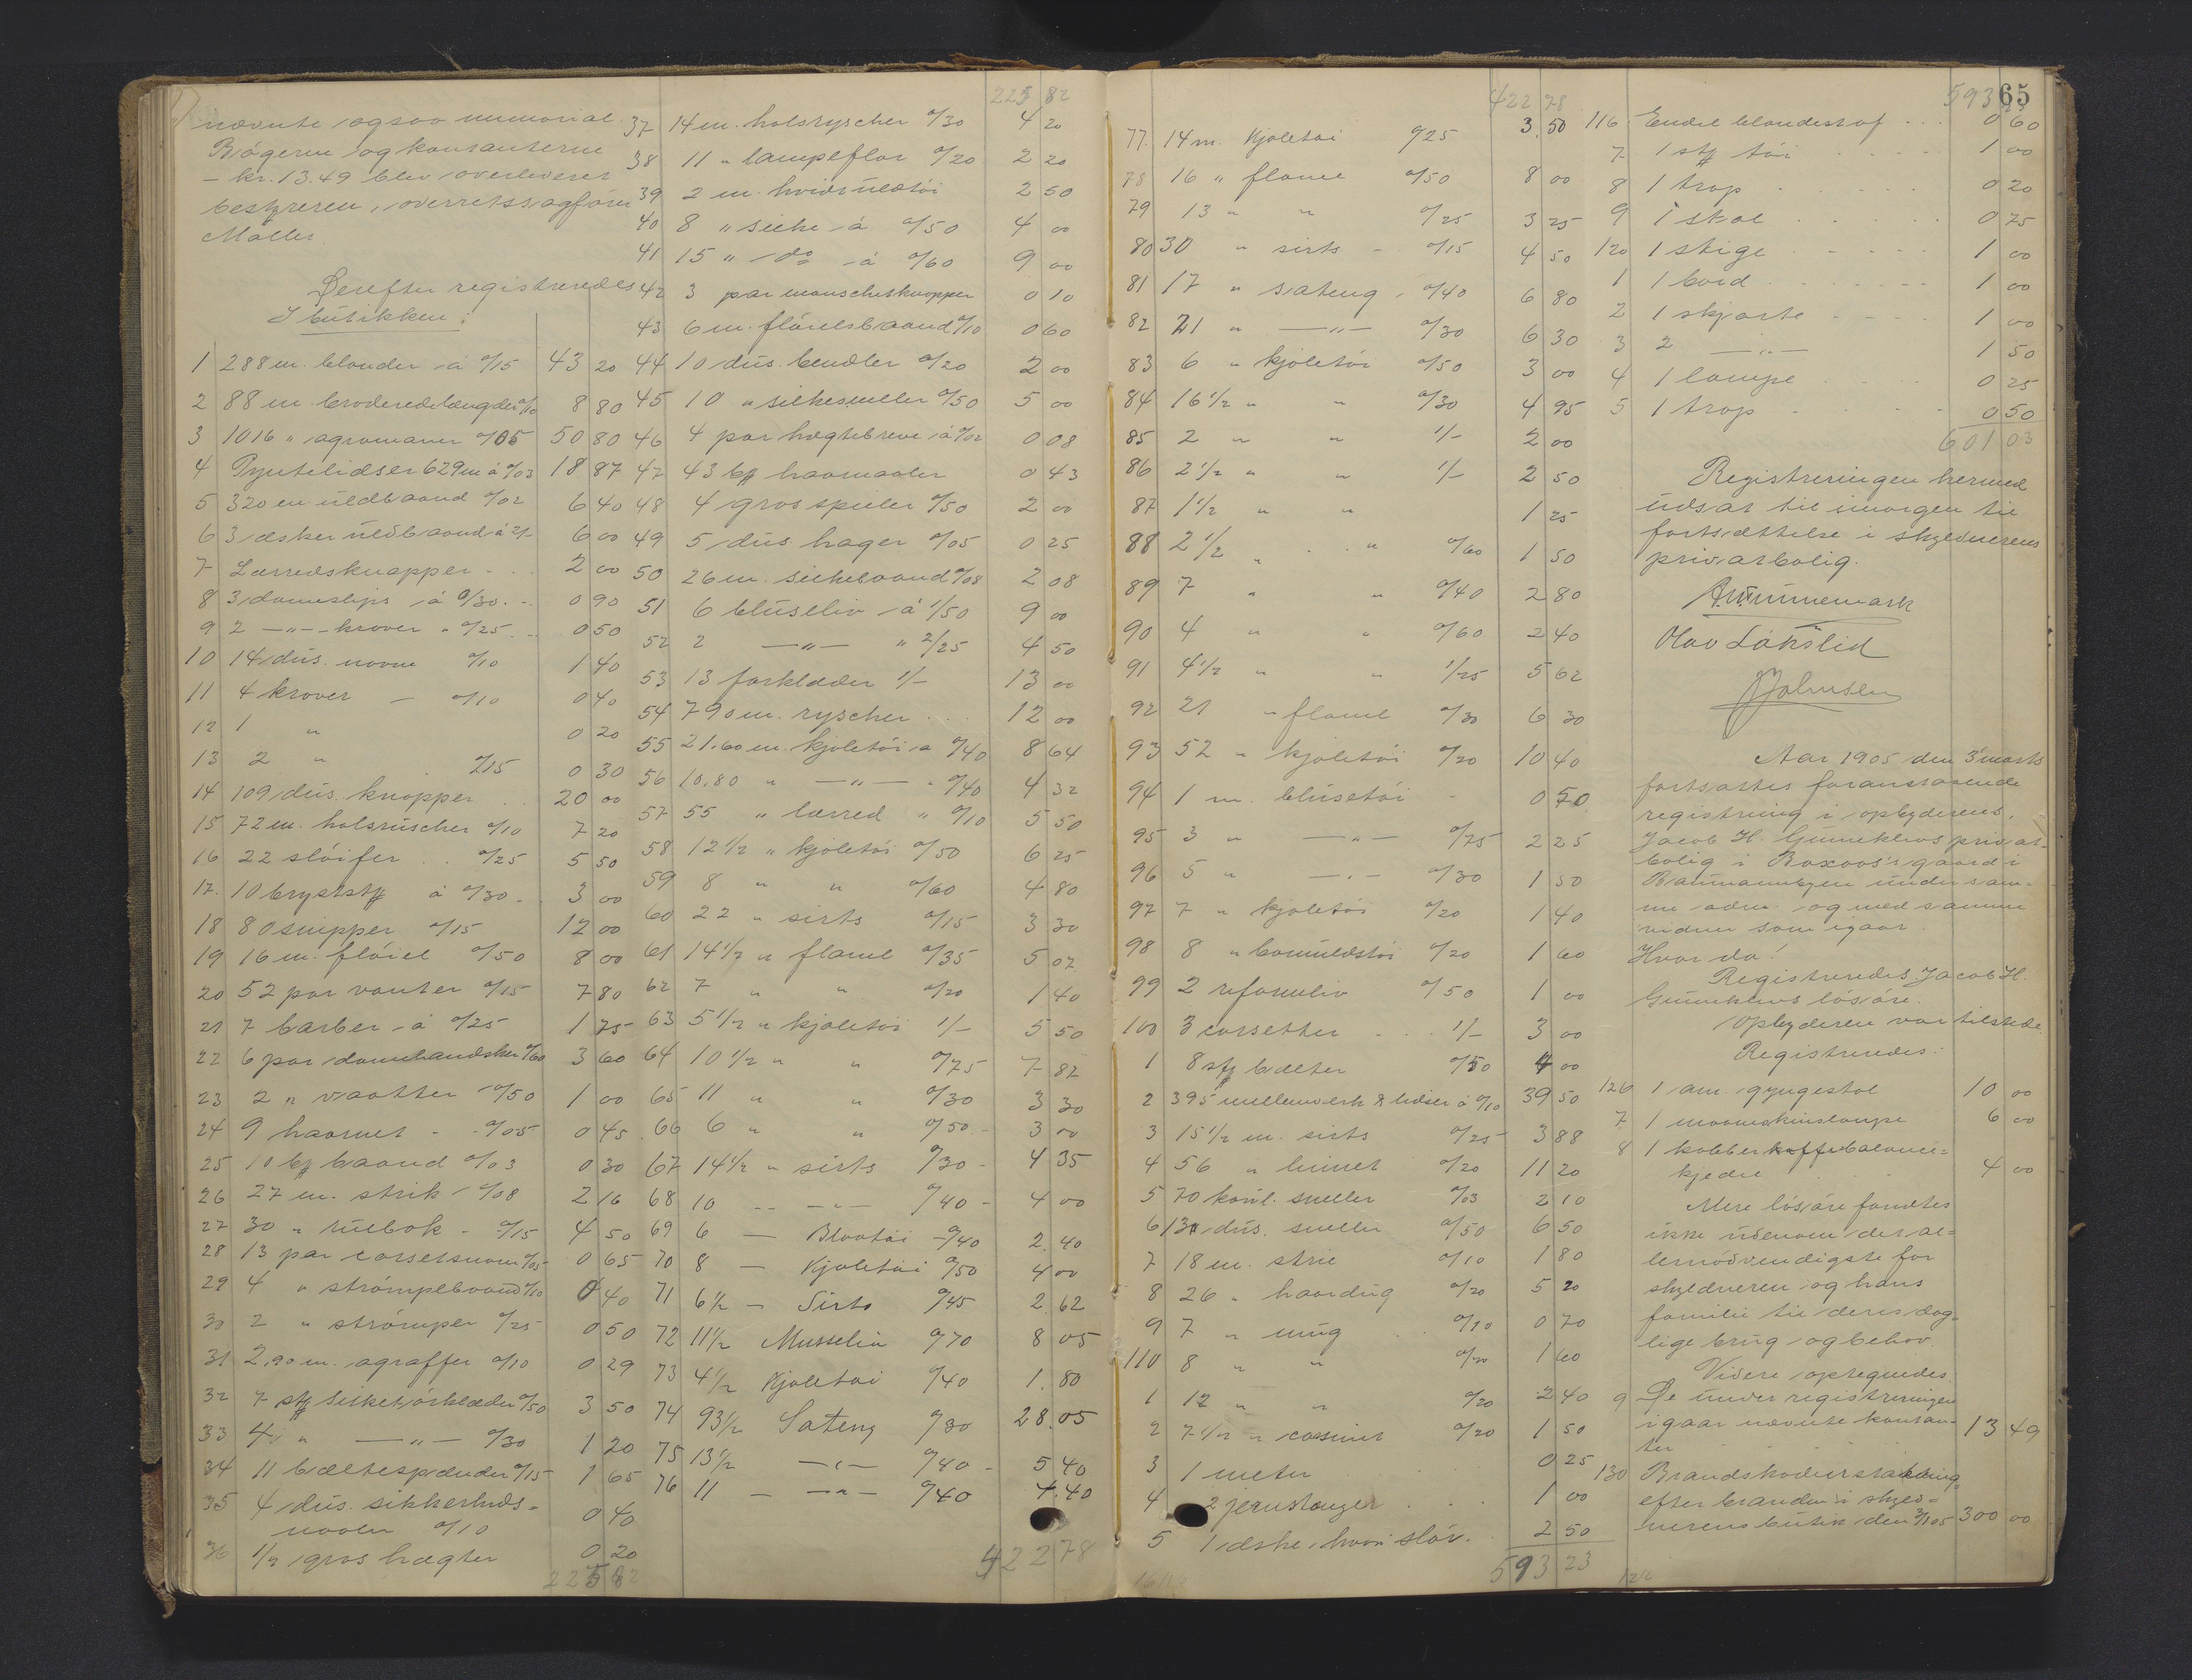 nævnte ogsaa memorial.
Bøgerne og kontanterne
- kr. 13.49 blev overleveret
bestyreren, overretssagfører
Møller.
Derefter registreredes
I butikken:
1 288 m. blonder à 0/15 43 20
2 88 m. broderedelængder 0/10 8 80
3 1016 " agromaner 0/05 50 80
4 Pyntelidser 629 m à 0/03 18 87
5 320 m uldbaand 0/02 6 40
6 3 æsker uldbaand à 2/- 6 00
7 Lærredsknapper - . . 2 00
8 3 dameslips à 0/30. - 0 90
9 2 -"- kraver " 0/25 . . 0 50
10 14 dus. naale 0/10 1 40
11 4 kraver - 0/10 0 40
12 1 " 0 20
13 2 " 0/15 0 30
14 109 dus. knapper . . 20 00
15 72 m. halsruscher 0/10 7 20
16 22 sløifer . . 0/25 5 50
17. 10 brystst. à 0/30 . 3 00
18 80 snipper 0/15 12 00
19 16 m. fløiel 0/50 8 00
20 52 par vanter 0/15 7 80
21 7 barber à 0/25 1 75
22 6 par damehandsker 0/60 3 60
23 2 " vaatter 0/50 1 00
24 9 haarnet - - 0/05 0 45
25 10 baand 0/03 0 30
26 27 m. strik 0/08 2 16
27 30 " - 0/15 4 50
28 13 par corsetsnore 0/05 0 65
29 4 " strømpebaand 0/10 0 40
30 2 " strømper 0/25 0 50
31 2,90 m. agraffer 0/10 0 29
32 7 st. silketørklæder 0/50 3 50
33 4 " -"- 0/30 1 20
34 11 bæltespænder 0/15 1 65
35 4 dus. sikkerheds-
naaler 0/10 0 40
36 1/2 gros hægter 0 20
225 82
225 82
37 14 m. halsryscher 0/30 4 20
38 11 " lampeflor 0/20 2 20
39 2 m. hvidt uldtøi 2 50
40 8 " silke à 0/50 4 00
41 15 " do à 0/60 9 00
42 3 par manschetknapper 0 10
43 6 m. fløielsbaand 0/10 0 60
44 10 dus. bendler 0/20 2 00
45 10 " silkesneller 0/50 5 00
46 4 par hægtebreve à 0/02 0 08
47 43 haarnaaler 0 43
48 4 gros spiler 0/50 2 00
49 5 dus. hager 0/05 0 25
50 26 m. silkebaand 0/08 2 08
51 6 bluseliv à 1/50 9 00
52 2 -"- " 2/25 4 50
53 13 forklæder 1/- 13 00
54 790 m. ryscher . . . 12 00
55 21.60 m. kjoletøi à 0/40 8 64
56 10,80 " -"- " 0/40 4 32
57 55 " lærred " 0/10 5 50
58 12 1/2 " kjoletøi 0/50 6 25
59 8 " " 0/60 4 80
60 22 " sirts 0/15 3 30
61 14 1/2 " flanel 0/35 5 07
62 7 " " 0/20 1 40
63 5 1/2 " kjoletøi 1/- 5 50
64 10 1/2 " " 0/75 7 87
65 11 " " 0/30 3 30
66 6 " " 0/50 - 3 00
67 14 1/2 " sirts 0/30 - 4 35
68 10 -- -"- 0/40 - 4 00
69 6 - - 0/40 2.40
70 8 - Kjoletøi 0/50 4 00
71 6 1/2 - Sirts 0/45 2.62
72 11 1/2 Musselin 0/70 8 05
73 4 1/2 Kjoletøi 0/40 1.80
74 93 1/2 Sateng 0/30 28.05
75 13 1/2 -"- 0/40 - 5 40
76 11 - -"- 0/40 4.40
422 78
422 78
77. 14 m. Kjoletøi 0/25 3.50
78 16 " flanel 0/50 8 00
79 13 " " 0/25 3 25
80 30 " sirts - 0/15 4 50
81 17 " sateng - 0/40 6 80
82 21 " -"- 0/30 6 30
83 6 " kjoletøi 0/50 3 00
84 16 1/2 " " 0/30 4 95
85 2 " " 1/- 2 00
86 2 1/2 " " 1/- 2 50
87 1 1/2 " " 1 25
88 2 1/2 " " 0/60 1 50
89 7 " " 0/40 2 80
90 4 " " 0/60 2 40
91 4 1/2 " " 1/25 5 62
92 21 " flanel 0/30 6 30
93 52 " kjoletøi 0/20 10 40
94 1 m. blusetøi - 0 70
95 3 " -"- 0/75 2 25
96 5 " -"- 0/30 1 50
97 7 " kjoletøi 0/20 1 40
98 8 " bomuldstøi 0/20 1 60
99 2 reformliv 0/50 1 00
100 3 corsetter . . . 1/- 3 00
1 8 st. bælter 0/50 4 00
2 395 mellemverk & lidser à 0/10 39 50
3 15 1/2 m. sirts 0/25 3 88
4 56 " linnet 0/20 11 20
5 70 sneller 0/03 2 10
6 13 dus. sneller 0/50 6 50
7 18 m. strie 0/10 1 80
8 26 " haardug 0/20 5 20
9 7 " mug . . 0/10 0 70
110 8 " " 0/20 1 60
1 12 " " 0/20 2 40
2 7 1/2 " casimir 0/20 1 50
3 1 meter 0 25
4 2 jernstænger . . . 1 00
5 1 æske, hvori sløv. . . 2 50
593 23
593 23
65
116 Endel blondestof . . . 0 60
7 1 st. tøi . . . . 1 00
8 1 trap . . . . 0 20
9 1 stol . . . . 0 75
120 1 stige . . . . 1 00
1 1 bord . . . . 1 00
2 1 skjorte . . . . 1 00
3 2 -"- 1 50
4 1 lampe . . . . 0 25
5 1 trap . . . . 0 50
601 03
Registreringen hermed
udsat til imorgen til
fortsættelse i skyldnerens
privatbolig.
Olav Lakslid
Johnsen
Aar 1905 den 3' marts
fortsattes foranstaaende
registrering i opbyderens,
Jacob H. Gunneklevs privat-
bolig i gaard i
under sam-
me adm. og med samme
vidner som igaar.
Hvor da!
Registreredes Jacob H.
Gunneklevs løsøre.
Opbyderen var tilstede
Registreredes:
126 1 am. gyngestol 10 00
7 1 maaneskinslampe 6 00
8 1 kobber kaffebalance-
kjedel 4 00
Mere løsøre fandtes
ikke udenom det al-
lernødvendigste for
skyldneren og hans
familie til deres dag-
lige brug og behov.
Videre optegnedes
9 De under registreringen
igaar nævnte kontan-
ter . . . . 13 49
130 Brandskadeerstatning
efter branden i skyld-
nerens butik den 3/1 05 300 00